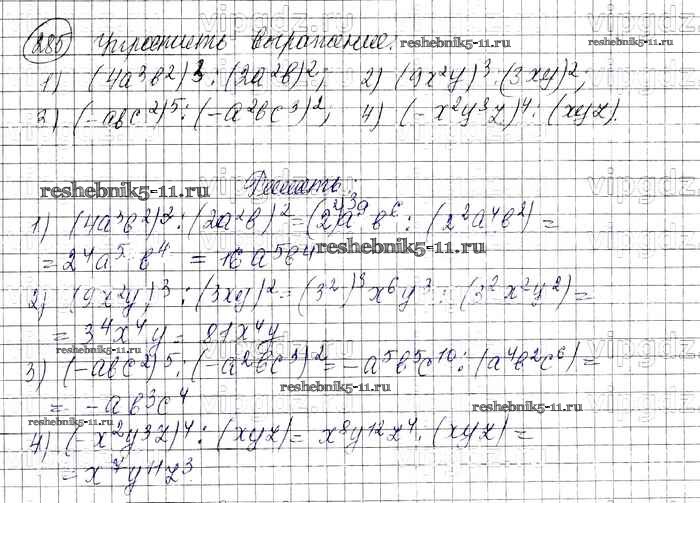 286 Упростить выражение: reshebnik5-11.ru
1) (4a³b²)³ : (2a²b)²; 2) (9x²y)³ : (3xy)²;
3) (-abc²)⁵ : (-a²bc³)²; 4) (-x²y³z)⁴ : (xyz).
reshebnik5-11.ru Решать:
1) (4a³b²)³ : (2a²b)² = (2²)³a⁹b⁶ : (2²a⁴b²) =
= 2⁴a⁵b⁴ = 16a⁵b⁴ reshebnik5-11.ru
2) (9x²y)³ : (3xy)² = (3²)³x⁶y³ : (3²x²y²) =
= 3⁴x⁴y = 81x⁴y
reshebnik5-11.ru
3) (-abc²)⁵ : (-a²bc³)² = -a⁵b⁵c¹⁰ : (a⁴b²c⁶) =
reshebnik5-11.ru
= -ab³c⁴ reshebnik5-11.ru
reshebnik5-11.ru
4) (-x²y³z)⁴ : (xyz) = x⁸y¹²z⁴ : (xyz) =
reshebnik5-11.ru
= x⁷y¹¹z³
vipgdz.ru
vipgdz
vipgdz
vipgdz
vipgdz